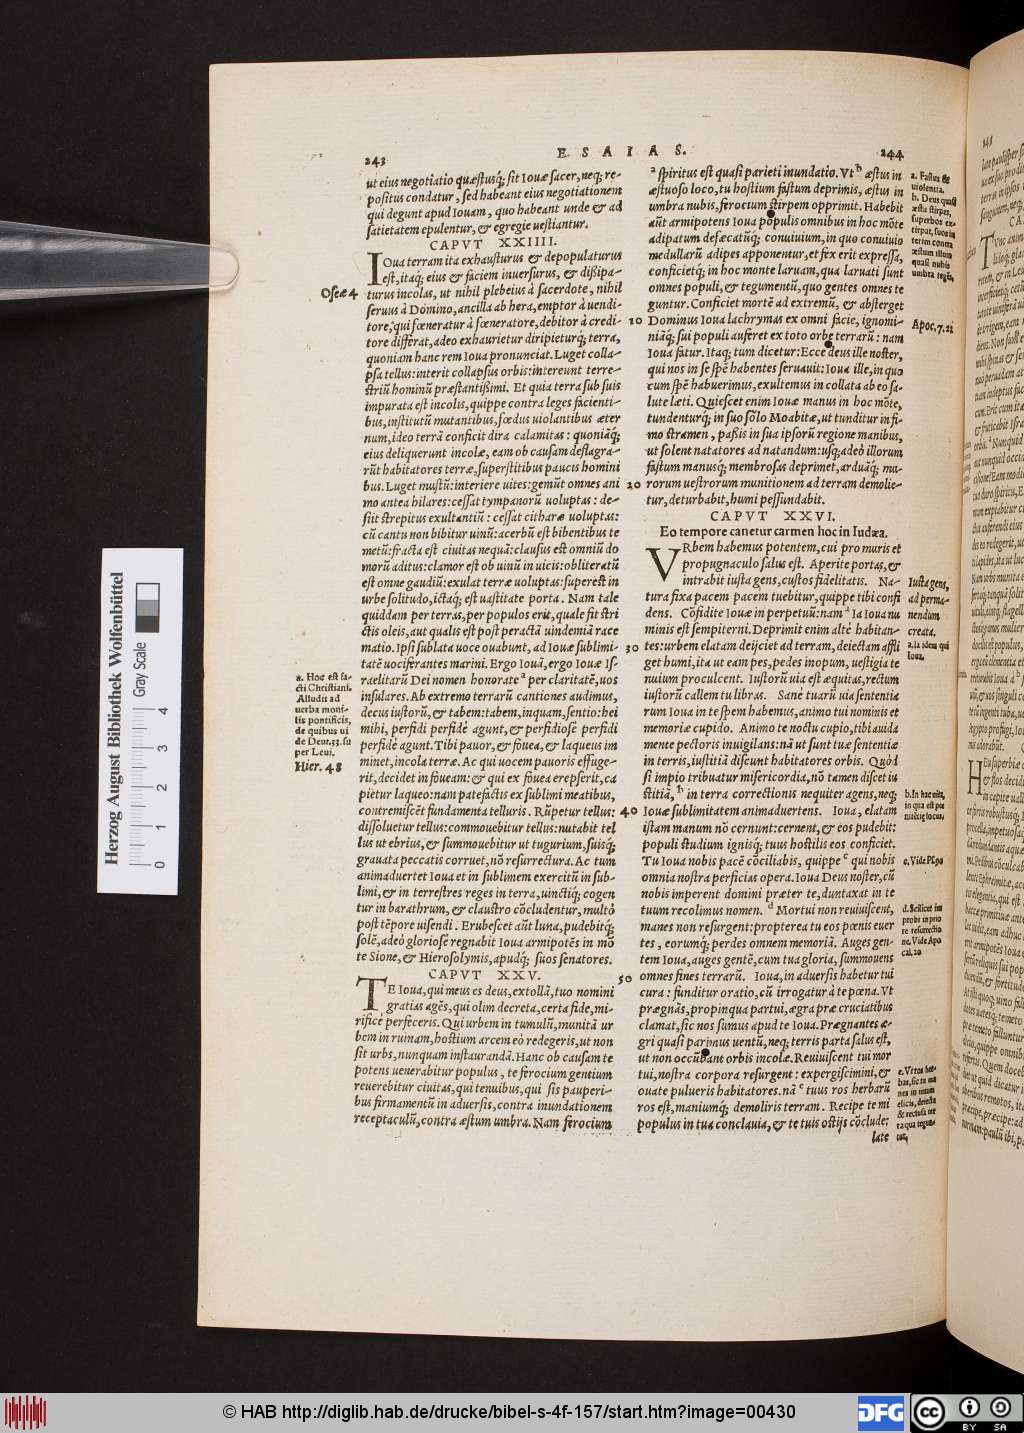 243
E S A I A S.
244
ut eius negotiatio quæstusq́; sit Iouæ sacer, neq; re-
positus condatur, sed habeant eius negotiationem
qui degunt apud Iouam, quo habeant unde & ad
satietatem epulentur, & egregie uestiantur.
CAPVT XXIIII.
IOua terram ita exhausturus & depopulaturus
est, itaq́; eius & faciem inuersurus, & dißipa-
turus incolas, ut nihil plebeius à sacerdote, nihil
seruus à Domino, ancilla ab hera, emptor à uendi-
tore, qui fœneratur à fœneratore, debitor à credi-
tore differat, adeo exhaurietur diripieturq́; terra,
quoniam hanc rem Ioua pronunciat. Luget colla-
psa tellus: interit collapsus orbis: intereunt terre-
striũ hominũ præstantißimi. Et quia terra sub suis
impurata est incolis, quippe contra leges facienti-
bus, institutũ mutantibus, fœdus uiolantibus æter
num, ideo terrã conficit dira calamitas: quoniãq́;
eius deliquerunt incolæ, eam ob causam deflagra-
rũt habitatores terræ, superstitibus paucis homini
bus. Luget mustũ: interiere uites: gemũt omnes ani
mo antea hilares: cessat tympanorũ uoluptas: de-
siit strepitus exultantiũ: cessat citharæ uoluptas:
cũ cantu non bibitur uinũ: acerbũ est bibentibus te
metũ: fracta est ciuitas nequã: clausus est omniũ do
morũ aditus: clamor est ob uinũ in uicis: obliteratũ
est omne gaudiũ: exulat terræ uoluptas: superest in
urbe solitudo, ictaq́; est uastitate porta. Nam tale
quiddam per terras, per populos erit, quale fit stri
ctis oleis, aut qualis est post peractã uindemiã race
matio. Ipsi sublata uoce ouabunt, ad Iouæ sublimi-
tatẽ uociferantes marini. Ergo Iouã, ergo Iouæ Is-
raelitarũ Dei nomen honorate a per claritatẽ, uos
insulares. Ab extremo terrarũ cantiones audimus,
decus iustorũ, & tabem: tabem, inquam, sentio: hei
mihi, perfidi perfidè agunt, & perfidiosè perfidi
perfidè agunt. Tibi pauor, & fouea, & laqueus im
minet, incola terræ. Ac qui uocem pauoris effuge-
rit, decidet in foueam: & qui ex fouea erepserit, ca
pietur laqueo: nam patefactis ex sublimi meatibus,
contremiscẽt fundamenta telluris. Rũpetur tellus:
dissoluetur tellus: commouebitur tellus: nutabit tel
lus ut ebrius, & summouebitur ut tugurium, suisq́;
grauata peccatis corruet, nõ resurrectura. Ac tum
animaduertet Ioua et in sublimem exercitũ in sub-
limi, & in terrestres reges in terra, uinctiq́; cogen
tur in barathrum, & claustro cõcludentur, multò
post tẽpore uisendi. Erubescet aũt luna, pudebitq́;
solẽ, adeò gloriose regnabit Ioua armipotẽs in mõ
te Sione, & Hierosolymis, apudq́; suos senatores.
CAPVT XXV.
TE Ioua, qui meus es deus, extollã, tuo nomini
gratias agẽs, qui olim decreta, certa fide, mi-
rificè perfeceris. Qui urbem in tumulũ, munitã ur
bem in ruinam, hostium arcem eò redegeris, ut non
sit urbs, nunquam instaurandã. Hanc ob causam te
potens uenerabitur populus, te ferocium gentium
reuerebitur ciuitas, qui tenuibus, qui sis pauperi-
bus firmamentũ in aduersis, contra inundationem
receptaculũ, contra æstum umbra. Nam ferocium
Oseæ 4
a. Hoc est sa-
cti Christiani.
Alludit ad
uerba moni-
lis pontificis,
de quibus ui
de Deut.33. su
per Leui.
Hier. 48
10
20
30
40
50
a spiritus est quasi parieti inundatio. Vt b æstus in
æstuoso loco, tu hostium fastum deprimis, æstus in
umbra nubis, ferocium stirpem opprimit. Habebit
aũt armipotens Ioua populis omnibus in hoc mõte
adipatum defæcatũq́; conuiuium, in quo conuiuio
medullarũ adipes apponentur, et fex erit expressa,
conficietq́; in hoc monte laruam, qua laruati sunt
omnes populi, & tegumentũ, quo gentes omnes te
guntur. Conficiet mortẽ ad extremũ, & absterget
Dominus Ioua lachrymas ex omni facie, ignomi-
niãq́; sui populi auferet ex toto orbe terrarũ: nam
Ioua fatur. Itaq; tum dicetur: Ecce deus ille noster,
qui nos in se spẽ habentes seruauit: Ioua ille, in quo
cum spẽ habuerimus, exultemus in collata ab eo sa-
lute læti. Quiescet enim Iouæ manus in hoc mõte,
tundenturq́; in suo sólo Moabitæ, ut tunditur in fi-
mo stramen, paßis in sua ipsorũ regione manibus,
ut solent natatores ad natandum: usq́; adeò illorum
fastum manusq́; membrosas deprimet, arduãq́; mu-
rorum uestrorum munitionem ad terram demolie-
tur, deturbabit, humi pessundabit.
CAPVT XXVI.
Eo tempore canetur carmen hoc in Iudæa.
VRbem habemus potentem, cui pro muris et
propugnaculo salus est. Aperite portas, &
intrabit iusta gens, custos fidelitatis. Na-
tura fixa pacem pacem tuebitur, quippe tibi confi
dens. Cõfidite Iouæ in perpetuũ: nam a Ia Ioua nu
minis est sempiterni. Deprimit enim altè habitan-
tes: urbem elatam deijciet ad terram, deiectam affli
get humi, ita ut eam pes, pedes inopum, uestigia te
nuium proculcent. Iustorũ uia est æquitas, rectum
iustorũ callem tu libras. Sanè tuarũ uia sententia
rum Ioua in te spem habemus, animo tui nominis et
memoriæ cupido. Animo te noctu cupio, tibi auida
mente pectoris inuigilans: nã ut sunt tuæ sententiæ
in terris, iustitiã discunt habitatores orbis. Quòd
si impio tribuatur misericordia, nõ tamen discet iu
stitiã, b in terra correctionis nequiter agens, neq;
Iouæ sublimitatem animaduertens. Ioua, elatam
istam manum nõ cernunt: cernent, & eos pudebit:
populi studium ignisq́; tuus hostilis eos conficiet.
Tu Ioua nobis pacẽ cõciliabis, quippe c qui nobis
omnia nostra perficias opera. Ioua Deus noster, cũ
nobis imperent domini præter te, duntaxat in te
tuum recolimus nomen. d Mortui non reuiuiscent,
manes non resurgent: propterea tu eos pœnis euer
tes, eorumq́; perdes omnem memoriã. Auges gen-
tem Ioua, auges gentẽ, cum tua gloria, summouens
omnes fines terrarũ. Ioua, in aduersis habetur tui
cura: funditur oratio, cũ irrogatur à te pœna. Vt
prægnãs, propinqua partui, ægra præ cruciatibus
clamat, sic nos sumus apud te Ioua. Prægnantes æ-
gri quasi parimus uentũ, neq; terris parta salus est,
ut non occũbant orbis incolæ. Reuiuiscent tui mor
tui, nostra corpora resurgent: expergiscimini, &
ouate pulueris habitatores. nã e tuus ros herbarũ
ros est, maniumq́; demoliris terram. Recipe te mi
populus in tua conclauia, & te tuis ostijs cõclude:
late
a. Fastus &
uiolentia.
b. Deus quasi
æstu stirpes,
superbos ex-
tirpat, suos in
terim contra
æstum illum
quasi nubis
umbra tegẽs.
Apoc.7.21
Iusta gens,
ad perma-
nendum
creata.
a. Ia idem qui
Ioua.
b. In hac uita,
in qua est pœ
nitẽtiæ locus.
c. Vide Ps.90
d. Scilicet im
probi in prio
re resurrectio
ne. Vide Apo
cal.20
e. Vt ros her-
bas, sic tu ma
nes in uitam
elicis, deiecta
& recisa ter
ra qua tegun-
tur.
Herzog August Bibliothek Wolfenbüttel
Gray Scale
0 1 2 3 4
© HAB http://diglib.hab.de/drucke/bibel-s-4f-157/start.htm?image=00430
DFG
CC BY SA